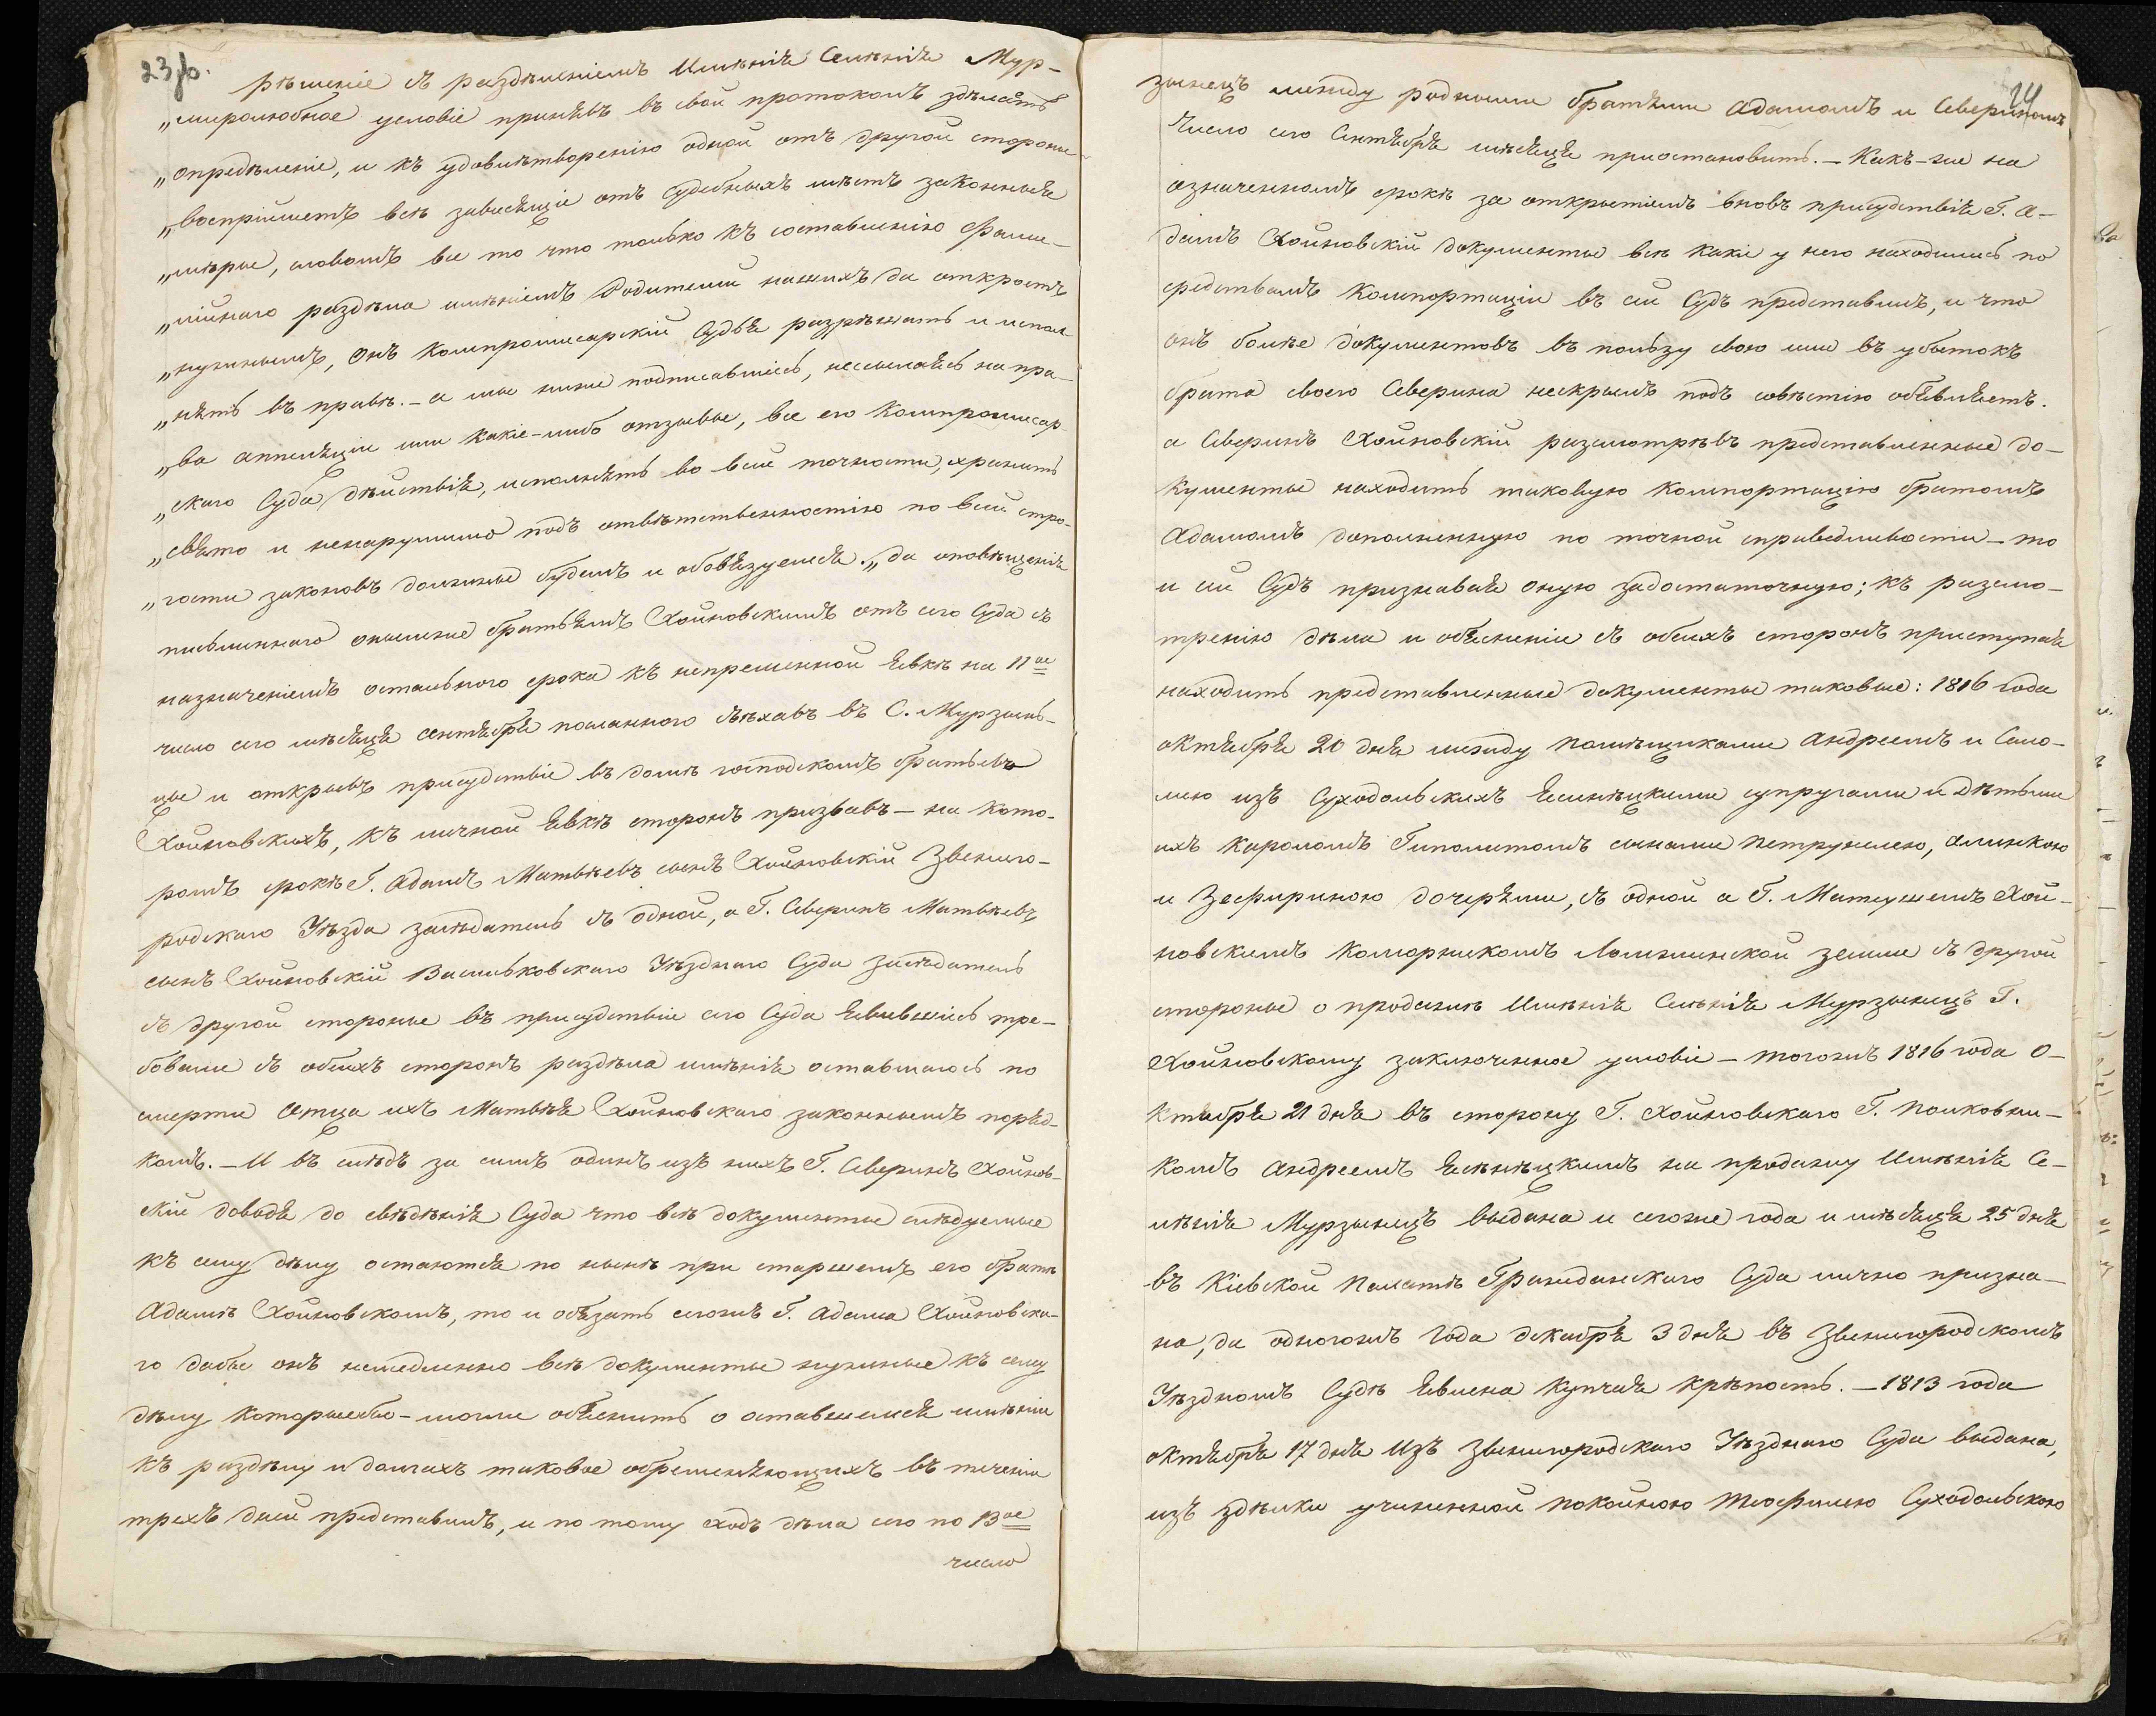 23 об.
рѣшеніе съ раздѣленіемъ Имѣнія Селенія Мур-
„миролюбное условіе принявъ въ свой протоколъ здѣлать
„опредѣленіе, и къ удовлѣтворенію одной отъ другой стороны
„воспрійметъ всѣ зависящіе отъ судебныхъ мѣстъ законныя
„мѣры, словомъ все то что только къ составленію Фами-
„лійнаго раздѣла имѣніемъ Родители нашихъ да откроетъ
„нужнымъ, онъ Компромисарскій Судья разрѣшать и испол-
„нять въ правѣ. — а мы ниже подписавшіесь, нессылаясь на пра-
„ва аппеляціи или какіе-либо отзывы, все его Компромисар-
„скаго Суда дѣйствія, исполнять во всей точности, хранить
„свято и ненарушимо подъ отвѣтственностію по всей стро-
„гости законовъ должные будемъ и обовязуемся.„ да оповѣщенія
письменнаго онымже братьямъ Хойновскимъ отъ сего Суда съ
назначеніемъ остальнаго срока къ непременной явкѣ на 11ое
число сего мѣсяца сентября посланнаго съѣхавъ въ С. Мурзин-
цы и открывъ присудствіе въ домѣ господскомъ братьевъ
Хойновскихъ, къ личной явкѣ сторонъ призвавъ — на кото-
ромъ срокѣ Г. Адамъ Матвѣевъ сынъ Хойновскій Звениго-
родскаго Уѣзда засѣдатель съ одной, а Г. Северинъ Матвѣевъ
сынъ Хойновскій Васильковскаго Уѣзднаго Суда засѣдатель
съ другой стороны въ присудствіе сего Суда явившіесь тре-
бовали съ обеихъ сторонъ раздѣла имѣнія оставшагось по
смерти Отца ихъ Матвѣя Хойновскаго законнымъ поряд-
комъ. — И въ слѣдъ за симъ одинъ изъ нихъ Г. Северинъ Хойнов-
скій доводя до свѣдѣнія Суда что всѣ документы слѣдуемые
къ сему дѣлу остаются по нынѣ при старшемъ его братѣ
Адамѣ Хойновскомъ, то и обязать сегожъ Г. Адама Хойновска-
го дабы онъ немедленно всѣ документы нужные къ сему
дѣлу которыебы-могли объяснить о оставшемся имѣніи
къ раздѣлу и долгахъ таковое обременяющихъ въ теченіи
трехъ дней представилъ, и по тому ходъ дѣла сего по 13ое
число
24
зинецъ между родными братьями Адамомъ и Севериномъ
Число сего Сентября мѣсяца приостановить. — Какъ-же на
означенномъ срокѣ за открытіемъ вновъ присудствія Г. А-
дамъ Хойновскій документы всѣ какіе у него находились по
средствамъ Компортаціи въ сей Судъ представилъ, и что
онъ болѣе документовъ въ пользу свою или въ убытокъ
брата своего Северина нескрылъ подъ совѣстію объявляетъ.
а Северинъ Хойновскій разсмотрѣвъ представленные до-
кументы находитъ таковую Компортацію братомъ
Адамомъ дополненную по точной справедливости — то
и сей Судъ признавая оную задостаточную; къ разсмо-
тренію дѣла и объясненіе съ обеихъ сторонъ приступая
находитъ представленные документы таковые: 1816 года
октября 20 дня между помѣщиками Андреемъ и Сало-
мею изъ Суходольскихъ Еленѣцкими супругами и дѣтьми
ихъ Каролемъ Гиполитомъ сынами Петрунелею, Алинкою
и Зефириною дочерями, съ одной а Г. Матеушемъ Хой-
новскимъ Коморникомъ Ломжинской земли съ другой
стороны о продажѣ Имѣнія Селенія Мурзинецъ Г.
Хойновскому заключенное условіе — тогожъ 1816 года О-
ктября 21 дня въ сторону Г. Хойновскаго Г. Полковни-
комъ Андреемъ Еленѣцкимъ на продажу Имѣнія Се-
ленія Мурзинецъ выдана и сегоже года и мѣсяца 25 дня
въ Кіевской Палатѣ Гражданскаго Суда лично призна-
на, да одногожъ года декабря 3 дня въ Звенигородскомъ
Уѣздномъ Судѣ явлена купчая крѣпость. — 1813 года
октября 17 дня Изъ Звенигородскаго Уѣзднаго Суда выдана,
изъ здѣлки учиненной покойною Теофилею Суходольскою